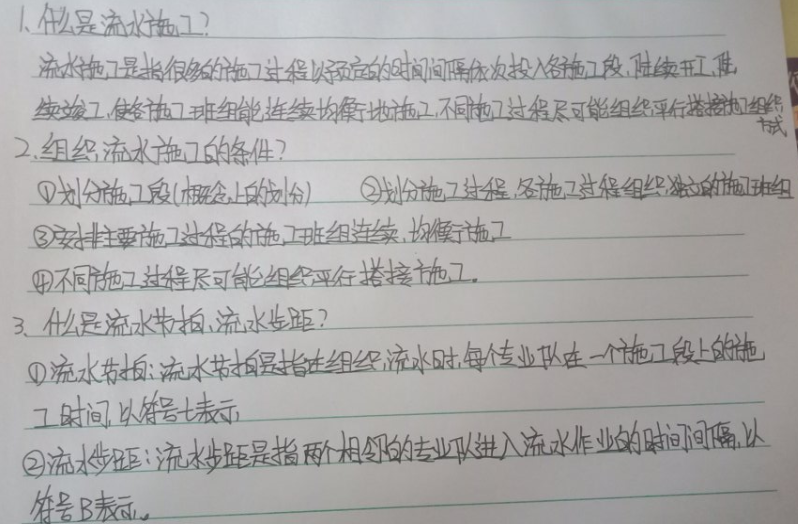 1、什么是流水施工？
流水施工是指很多的施工过程以预定的时间间隔依次投入各施工段，陆续开工，陆
续竣工，使各施工班组能连续均衡地施工，不同施工过程尽可能组织平行搭接施工组织
方式
2、组织流水施工的条件？
①划分施工段（概念上的划分） ②划分施工过程，各施工过程组织独立的施工班组
③安排主要施工过程的施工班组连续、均衡施工
④不同施工过程尽可能组织平行搭接施工。
3、什么是流水节拍、流水步距？
①流水节拍：流水节拍是指在组织流水时，每个专业队在一个施工段上的施
工时间，以符号t表示，
②流水步距：流水步距是指两个相邻的专业队进入流水作业的时间间隔，以
符号B表示。